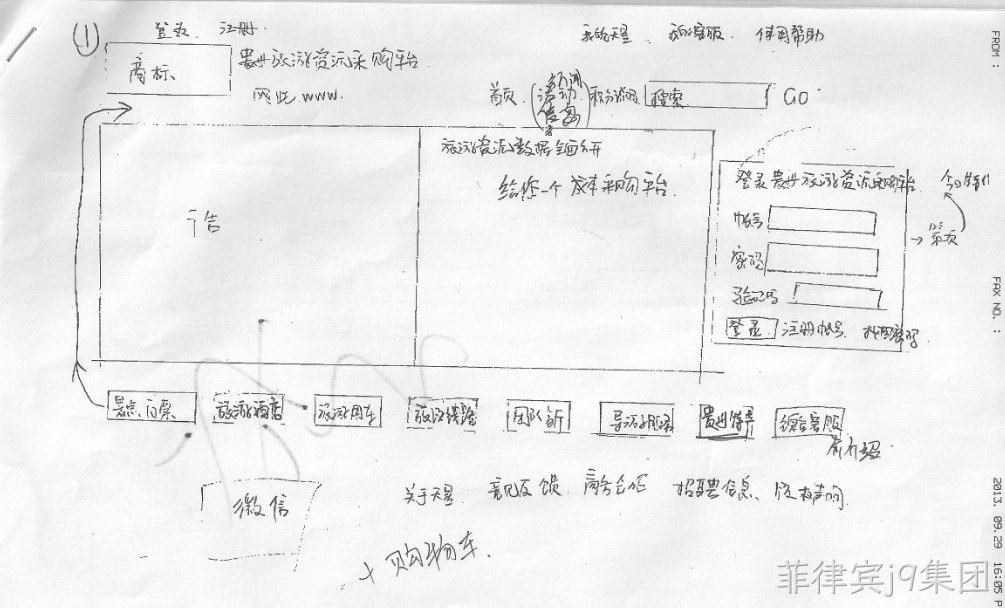 (1)
登录 注册
商标
贵州旅游资源采购平台
网址 www.
我的天呈、 在线客服、 使用帮助
首页 (新闻 活动 信息) 积分换购 搜索 GO
广告
旅游资源数据
给您一个 成本采购平台
登录贵州旅游资源采购平台
帐号
密码
验证码
登录 注册帐号、 找回密码
今日特价
景点门票
旅游酒店
旅游用车
旅游线路
团队
导游
贵州特产
综合客服
介绍
微信
关于天呈 意见反馈、 商务合作 招聘信息、 版权声明
+购物车、
FROM :
FAX NO. :
2013. 09.29 16:05 P
菲律宾j9集团